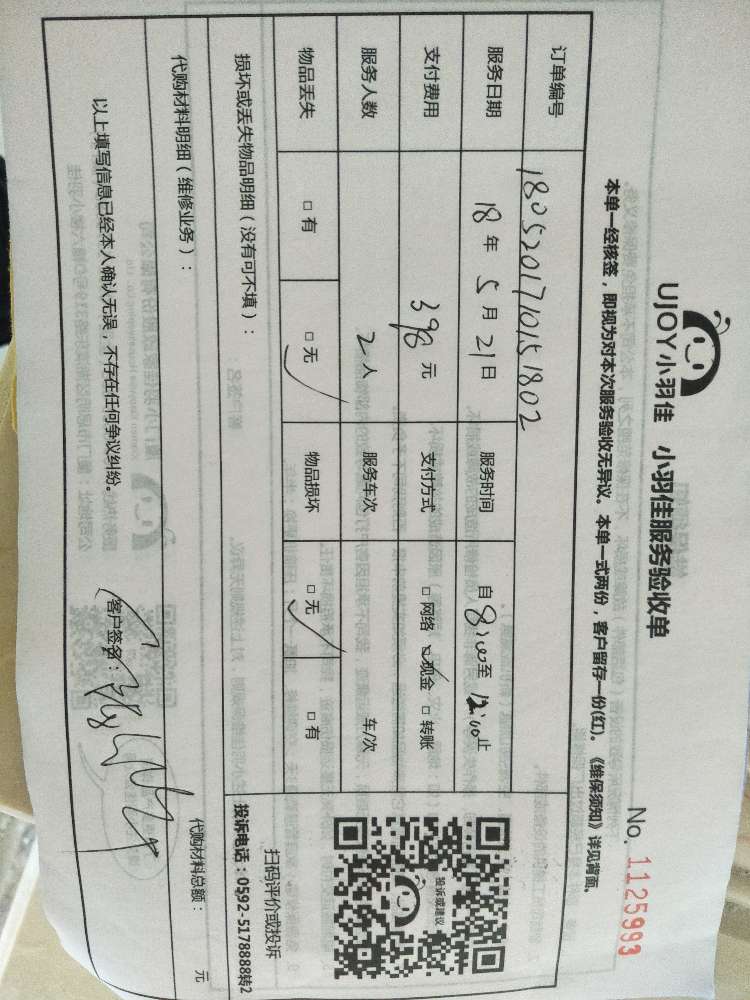 UJOY小羽佳 小羽佳服务验收单
No. 1125993
本单一经核签，即视为对本次服务验收无异议。本单一式两份，客户留存一份(红)。《维保须知》详见背面。
订单编号 1805201710151802
服务日期 18年5月21日 服务时间 自8:00至12:00止
支付费用 398元 支付方式 □网络 ☑现金 □转账
服务人数 2人 服务车次 车/次
物品丢失 □有 ☑无 物品损坏 ☑无 □有
投诉或建议
扫码评价或投诉
投诉电话：0592-5178888转2
损坏或丢失物品明细（没有可不填）：
代购材料明细（维修业务）： 代购材料总额： 元
以上填写信息已经本人确认无误，不存在任何争议纠纷。 （客户签名：